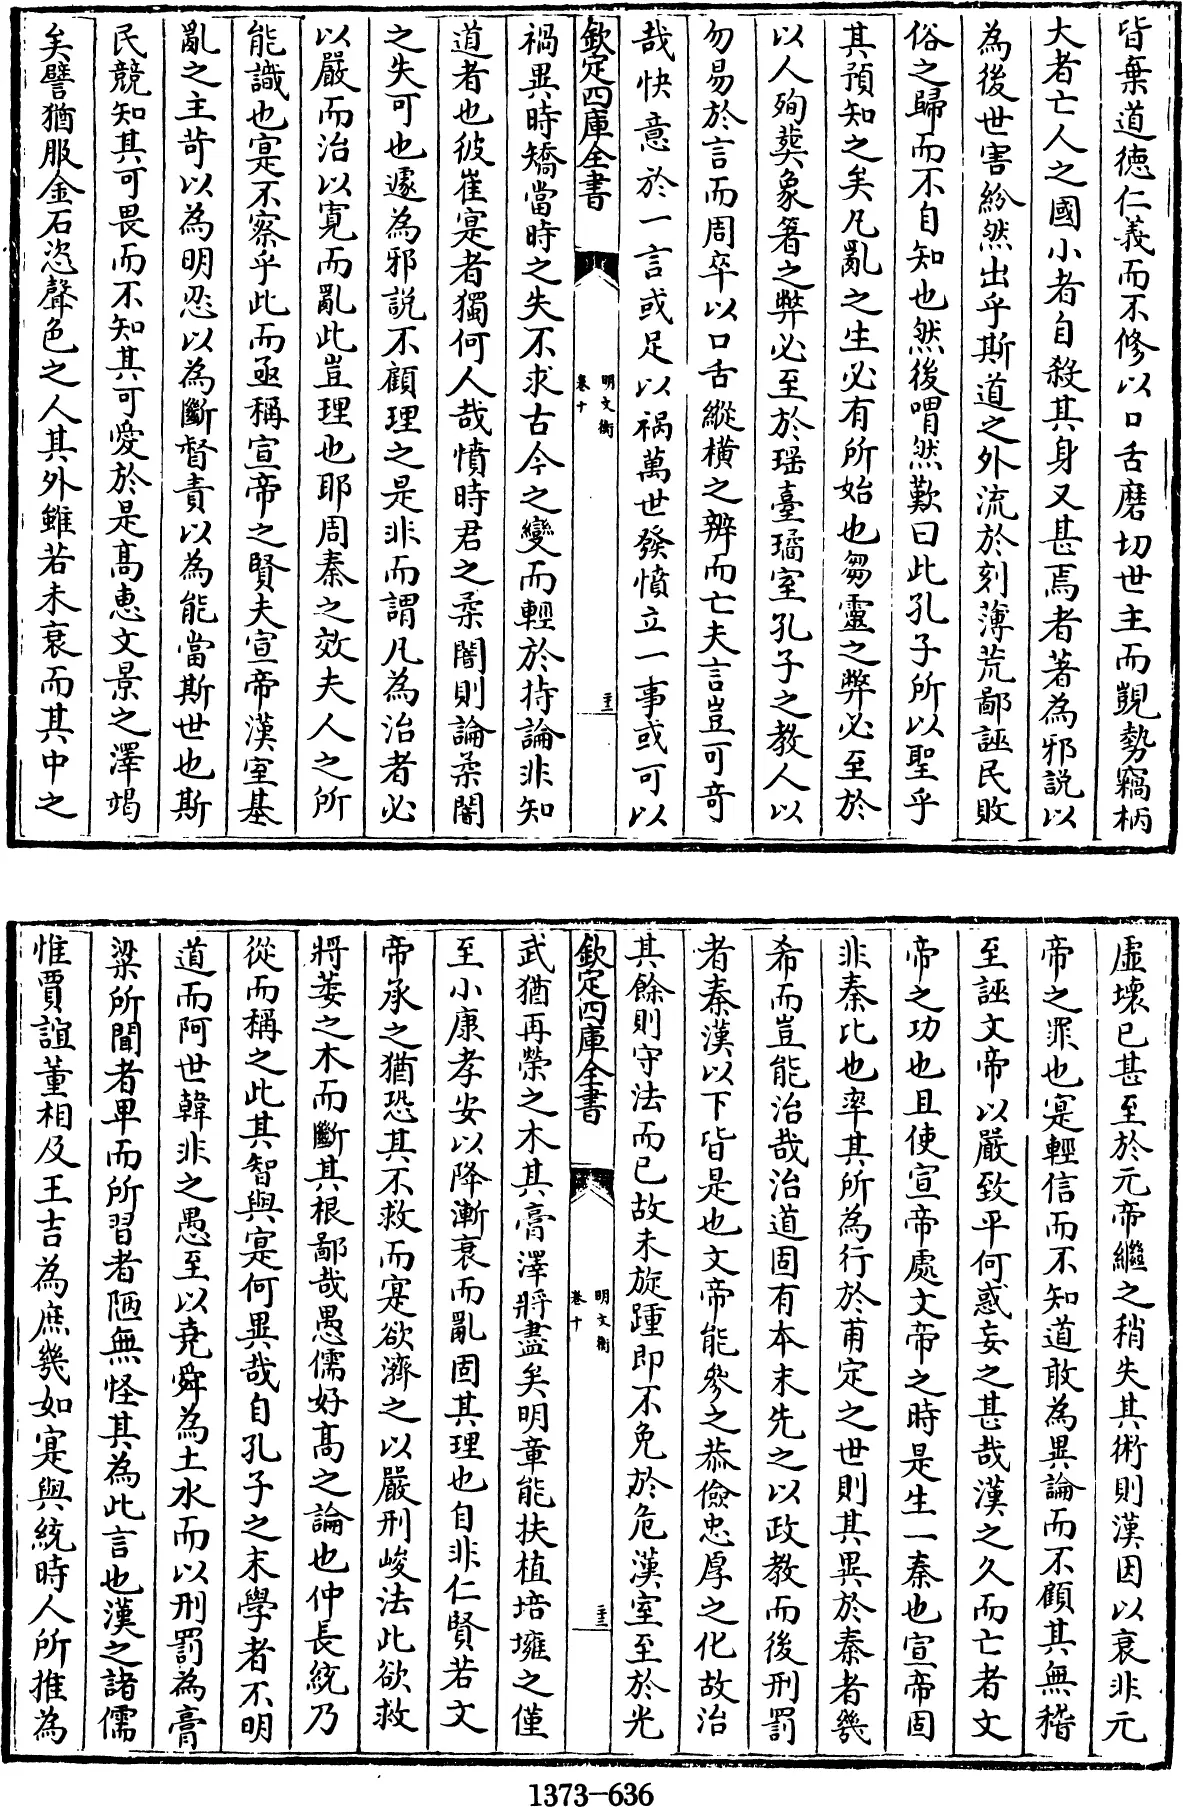 皆棄道德仁義而不修以口舌磨切世主而覬勢竊柄
大者亡人之國小者自殺其身又甚焉者著為邪說以
為後世害紛然出乎斯道之外流於刻薄荒鄙誣民敗
俗之歸而不自知也然後喟然歎曰此孔子所以聖乎
其預知之矣凡亂之生必有所始也芻靈之弊必至於
以人殉葬象箸之弊必至於瑶臺璚室孔子之教人以
勿易於言而周卒以口舌縱橫之辨而亡夫言豈可奇
哉快意於一言或足以禍萬世發憤立一事或可以
欽定四庫全書
明文衡
卷十
二十二
禍異時矯當時之失不求古今之變而輕於持論非知
道者也彼崔寔者獨何人哉憤時君之柔闇則論柔闇
之失可也遽為邪說不顧理之是非而謂凡為治者必
以嚴而治以寛而亂此豈理也耶周秦之效夫人之所
能識也寔不察乎此而亟稱宣帝之賢夫宣帝漢室基
亂之主苛以為明忍以為斷督責以為能當斯世也斯
民競知其可畏而不知其可愛於是高恵文景之澤竭
矣譬猶服金石恣聲色之人其外雖若未衰而其中之
虛壊已甚至於元帝繼之稍失其術則漢因以衰非元
帝之罪也寔輕信而不知道敢為異論而不顧其無稽
至誣文帝以嚴致平何惑妄之甚哉漢之久而亡者文
帝之功也且使宣帝處文帝之時是生一秦也宣帝固
非秦比也率其所為行於甫定之世則其異於秦者幾
希而豈能治哉治道固有本末先之以政教而後刑罰
者秦漢以下皆是也文帝能參之恭儉忠厚之化故治
其餘則守法而已故未旋踵即不免於危漢室至於光
欽定四庫全書
明文衡
卷十
二十三
武猶再榮之木其膏澤將盡矣明章能扶植培壅之僅
至小康孝安以降漸衰而亂固其理也自非仁賢若文
帝承之猶恐其不救而寔欲濟之以嚴刑峻法此欲救
將萎之木而斷其根鄙哉愚儒好高之論也仲長統乃
從而稱之此其智與寔何異哉自孔子之末學者不明
道而阿世韓非之愚至以堯舜為土水而以刑罰為膏
粱所聞者卑而所習者陋無怪其為此言也漢之諸儒
惟賈誼董相及王吉為庶幾如寔與統時人所推為
1373-636